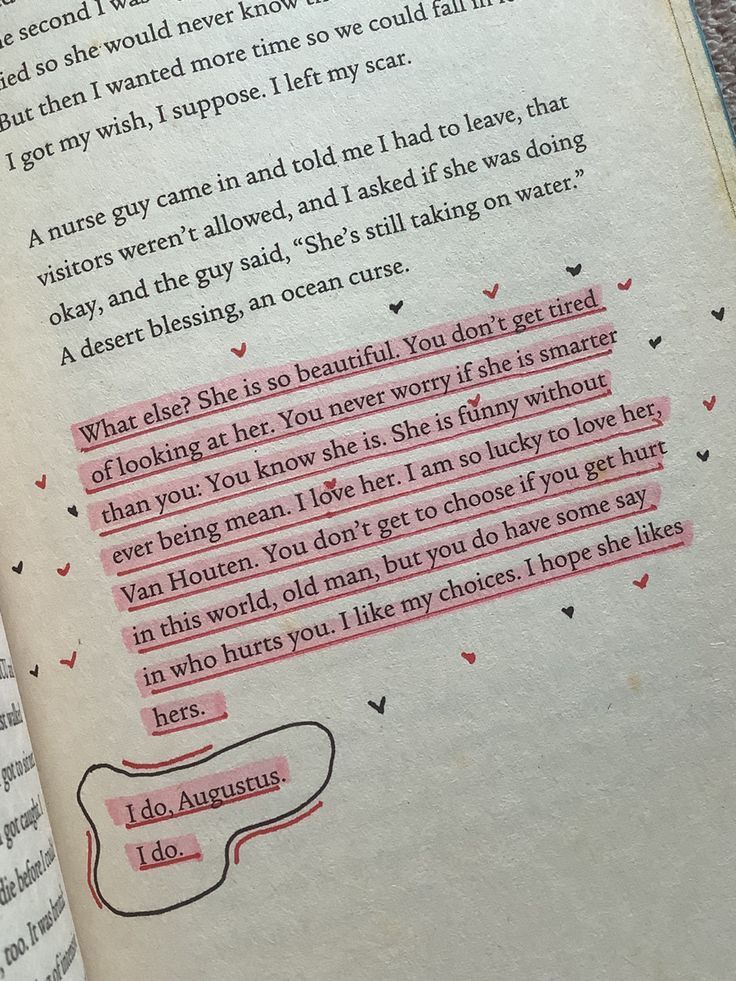 second I was
so she would never know
But then I wanted more time so we could fall in
I got my wish, I suppose. I left my scar.
A nurse guy came in and told me I had to leave, that
visitors weren't allowed, and I asked if she was doing
okay, and the guy said, “She's still taking on water.”
A desert blessing, an ocean curse.
What else? She is so beautiful. You don't get tired
of looking at her. You never worry if she is smarter
than you: You know she is. She is funny without
ever being mean. I love her. I am so lucky to love her,
Van Houten. You don't get to choose if you get hurt
in this world, old man, but you do have some say
in who hurts you. I like my choices. I hope she likes
hers.
I do, Augustus.
I do.
got caught
die before I
too. It was